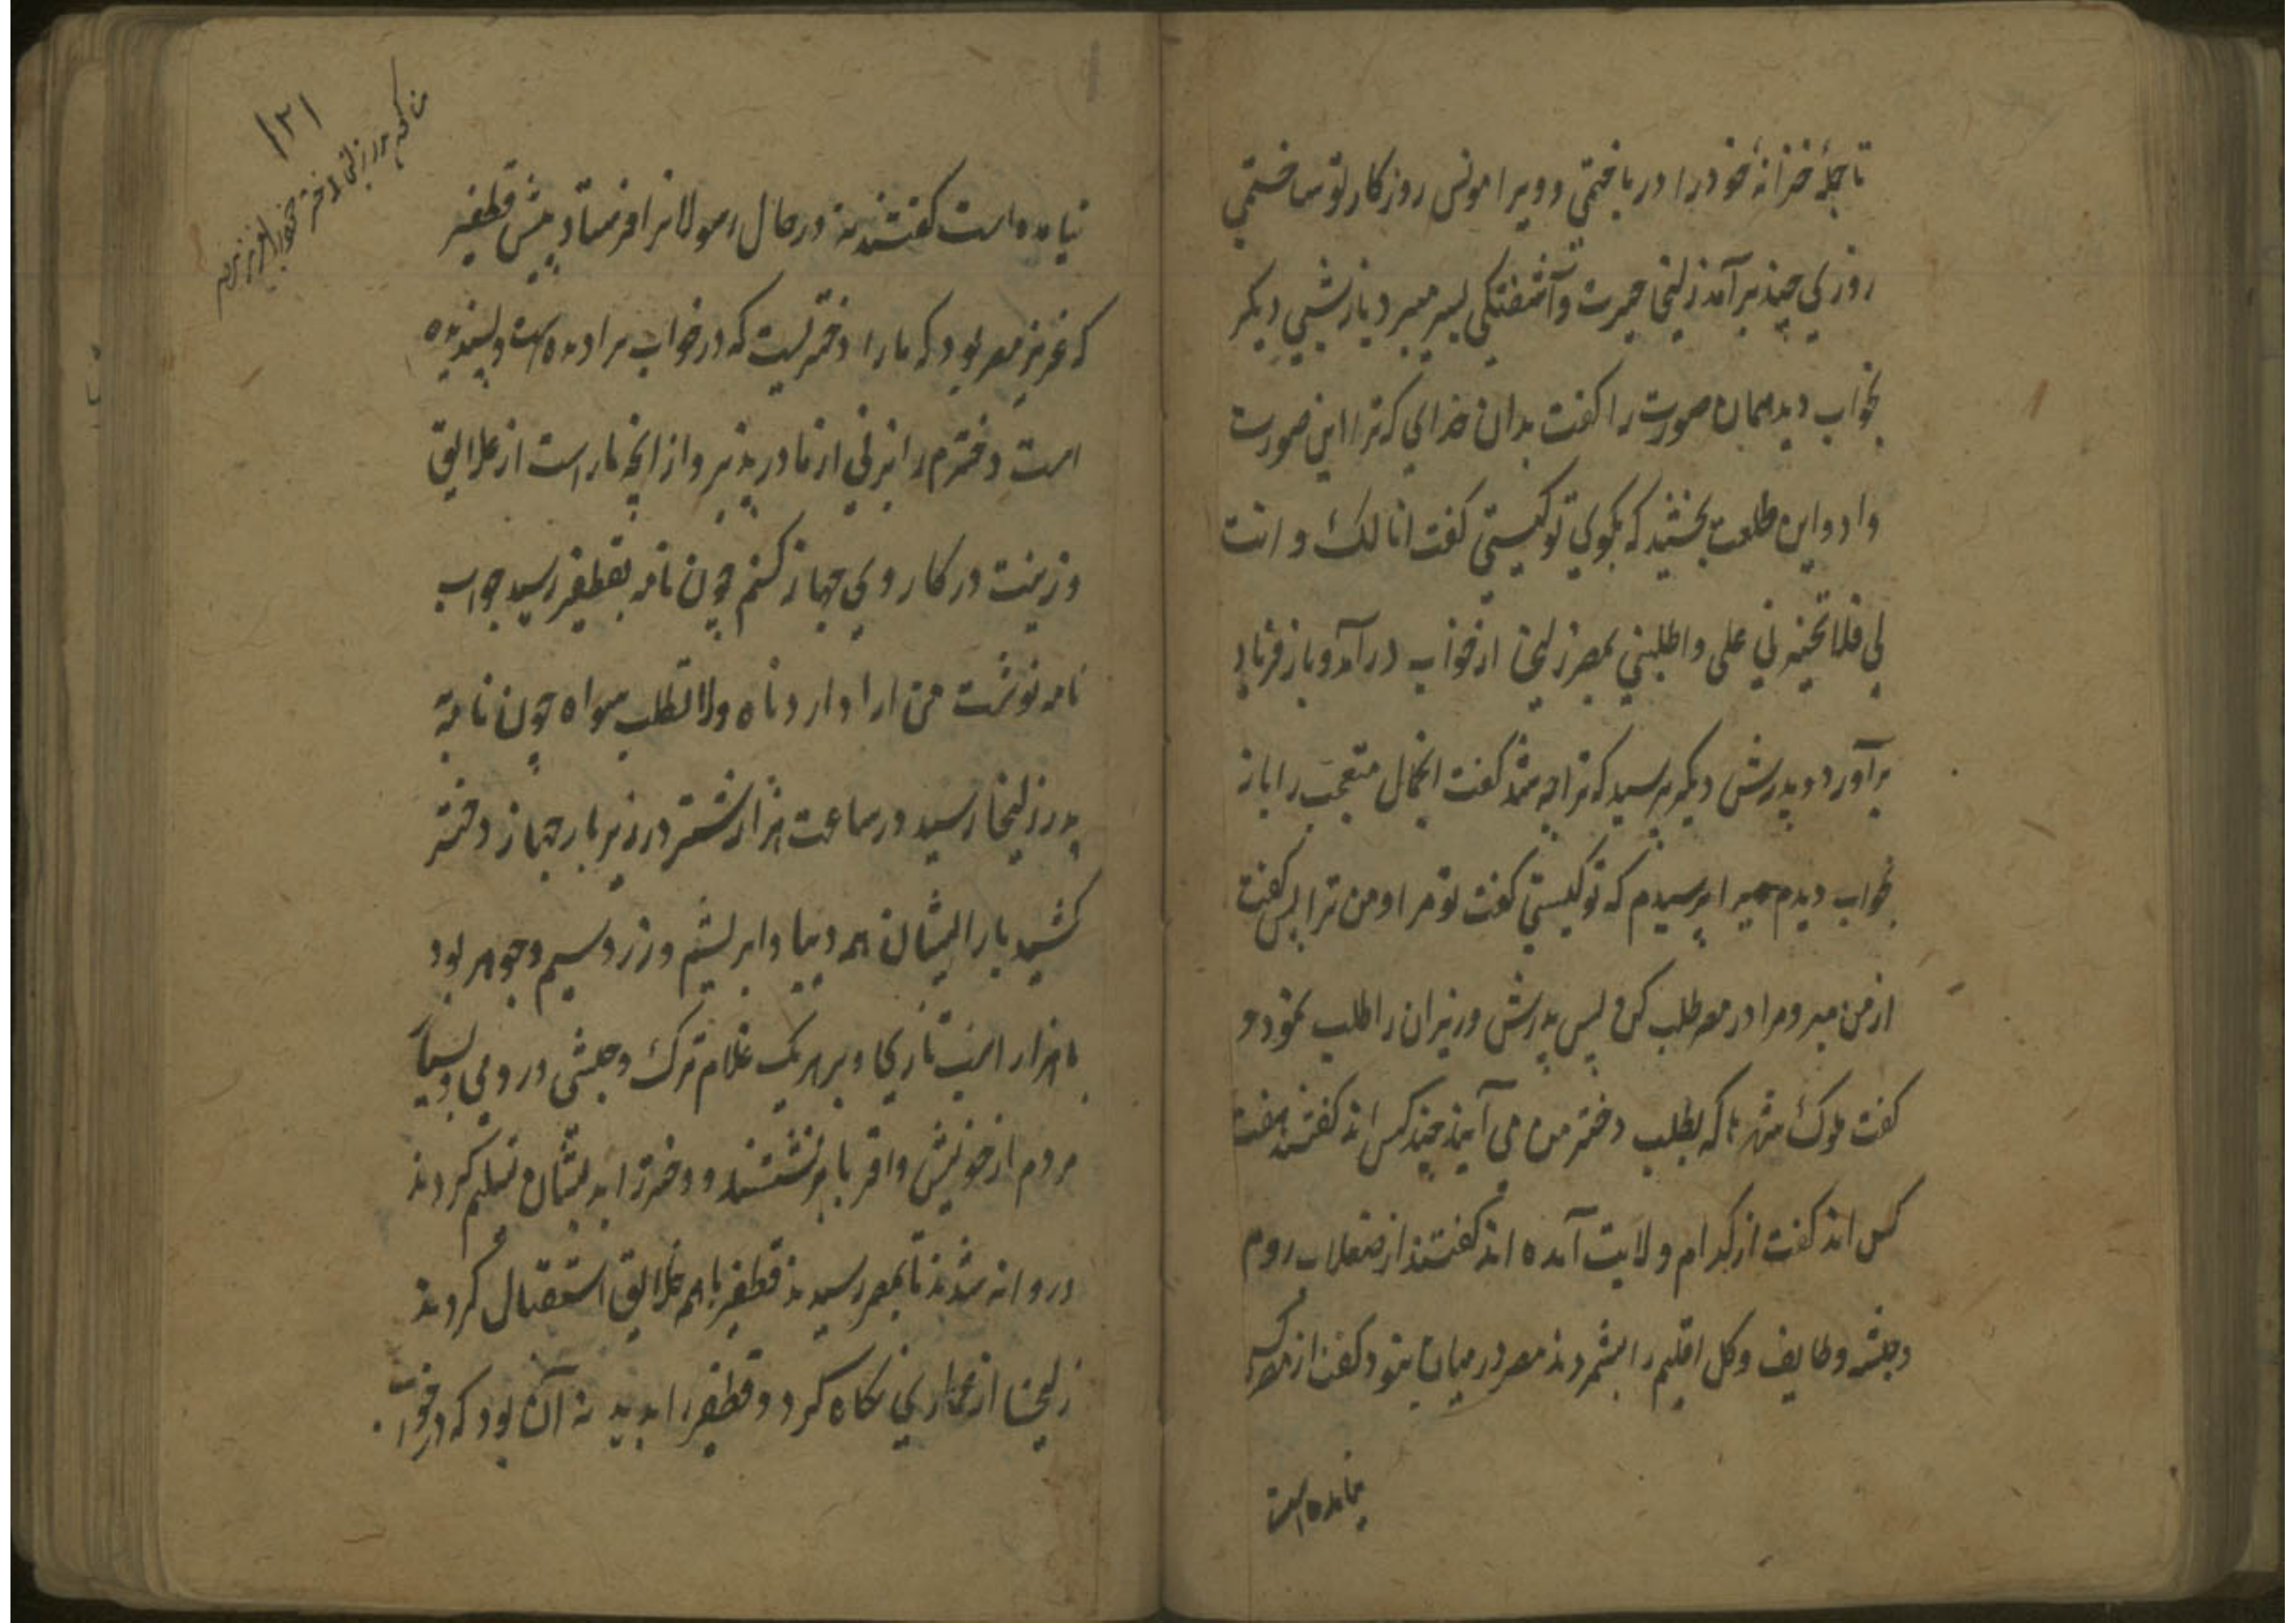 تا جملهٔ خزانهٔ خود را در باختمی و ویرا مونس روزکار تو ساختمی
روزی چند برآمد زلیخا حیرت و آشفتکی بسر میبرد باز شبی دیکر
بخواب دید همان صورت را کفت بدان خدایی که ترا این صورت
داد و این طلعت بخشید که بکوی تو کیستی کفت انا لک و انت
لی فلا تختر لی علی واطلبنی بمصر زلیخا از خواب درآمد و باز فریاد
برآورد و پدرش دیکر پرسید که ترا چه شد کفت انجمال متعجب را باز
بخواب دیدم ویرا پرسیدم که تو کیستی کفت تو مرا و من ترا پس کفت
از من مبر و مرا در مصر طلب کن پس پدرش وزیران را طلب نمود و
کفت ملوک شهرها که بطلب دختر من می آیند چند کس اند کفتند هفت
کس اند کفت از کدام ولایت آمده اند کفتند از صقلاب روم
و حبشه و طایف و کل اقلیم را بشمردند مصر در میان نبود کفت از مصر کسی
نیامده است
۱۲۱
نیامده است کفتند نه در حال رسولانرا فرستاد پیش قطفیر
که عزیز مصر بود که ما را دختریست که در خواب ترا دیده است و پسندیده
است دخترم را بزنی از ما در پذیر و از انچه ما راست از علایق
و زینت در کار وی جهاز کنم چون نامه بقطفیر رسید جواب
نامه نوشت من ارادا اردناه ولا نطلب سواه چون نامه
پدر زلیخا رسید در ساعت هزار شتر در زیر بار جهاز دختر
کشید بار ایشان همه دیبا و ابریشم و زر و سیم و جوهر بود
با هزار اسب تازی و بر هر یک غلام ترک و حبشی و رومی و بسیار
مردم از خویش و اقربا برنشستند و دختر را بدیشان تسلیم کردند
و روانه شدند تا بمصر رسیدند قطفیر با همه خلایق استقبال کردند
زلیخا از عماری نکاه کرد و قطفیر را بدید نه آن بود که در خواب